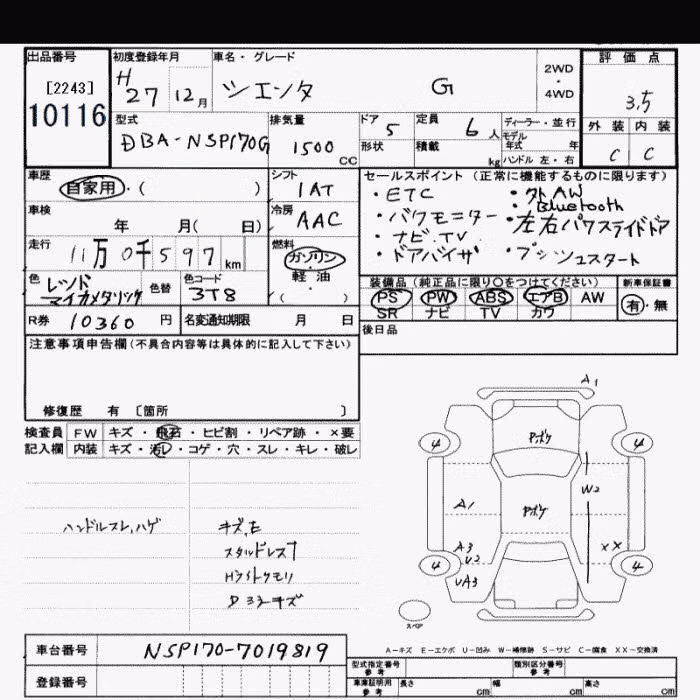 出品番号
[2243]
10116
初度登録年月
H 27 12月
車名・グレード
シエンタ G
2WD
・
4WD
評価点
3.5
外装 内装
C C
型式
DBA-NSP170G
排気量
1500 CC
ドア 5
形状
定員 6 人
積載 kg
ディーラー・並行
モデル
年式 年
ハンドル 左・右
車歴
自家用・( )
シフト
1AT
車検
年 月( 日)
冷房
AAC
走行
11万0千597 km
燃料
ガソリン・
軽・油
・
色 レッド
マイカメタリック
色替
色コード
3T8
R券 10360 円
名変通知期限 月 日
セールスポイント(正常に機能するものに限ります)
・ETC ・外AW
・Bluetooth
・バクモニター ・左右パワスライドドア
・ナビ.TV
・ドアバイザ ・プッシュスタート
装備品(純正品に限り○をつけてください)
PS PW ABS エアB AW
SR ナビ TV カワ
新車保証書
有・無
後日品
注意事項申告欄(不具合内容等は具体的に記入して下さい)
修復歴 有 〔箇所 〕
検査員 FW キズ・飛石・ヒビ割・リペア跡・×要
記入欄 内装 キズ・汚レ・コゲ・穴・スレ・キレ・破レ
ハンドルスレ,ハゲ
キズ,E
Hライトクモリ
A1
Pボケ
4 4
W2
A1
Pボケ
A3
U2
XX
4 4
UA3
スペア
A-キズ E-エクボ U-凹み W-補修跡 S-サビ C-腐食 XX-交換済
車台番号 NSP170-7019819
登録番号
型式指定番号
参考
類別区分番号
参考
車庫証明用
参考
長さ cm 幅 cm 高さ cm